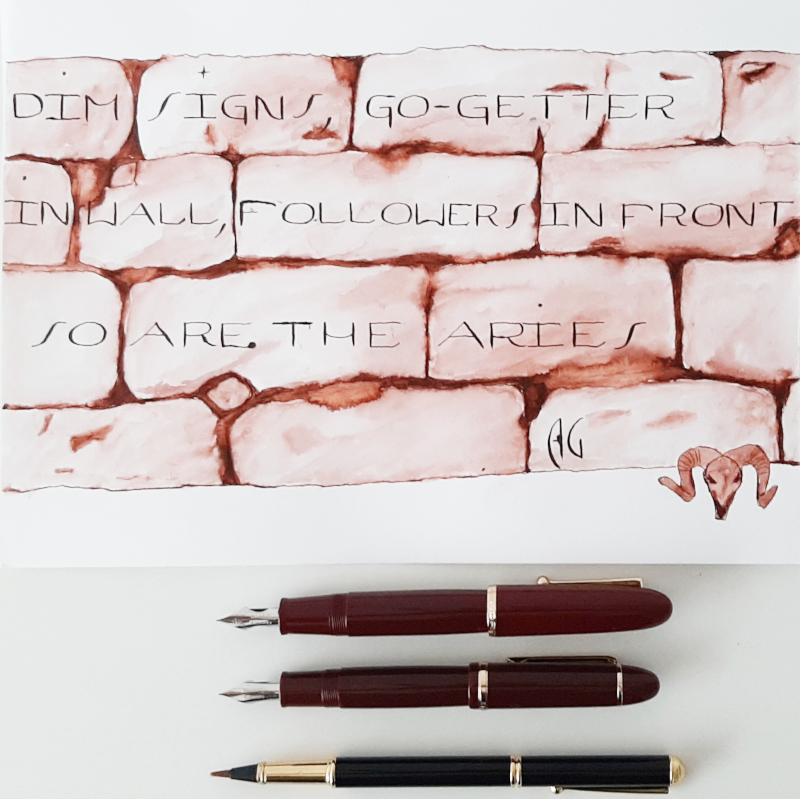 DIM SIGNS, GO-GETTER
IN WALL, FOLLOWERS IN FRONT
SO ARE THE ARIES
AG